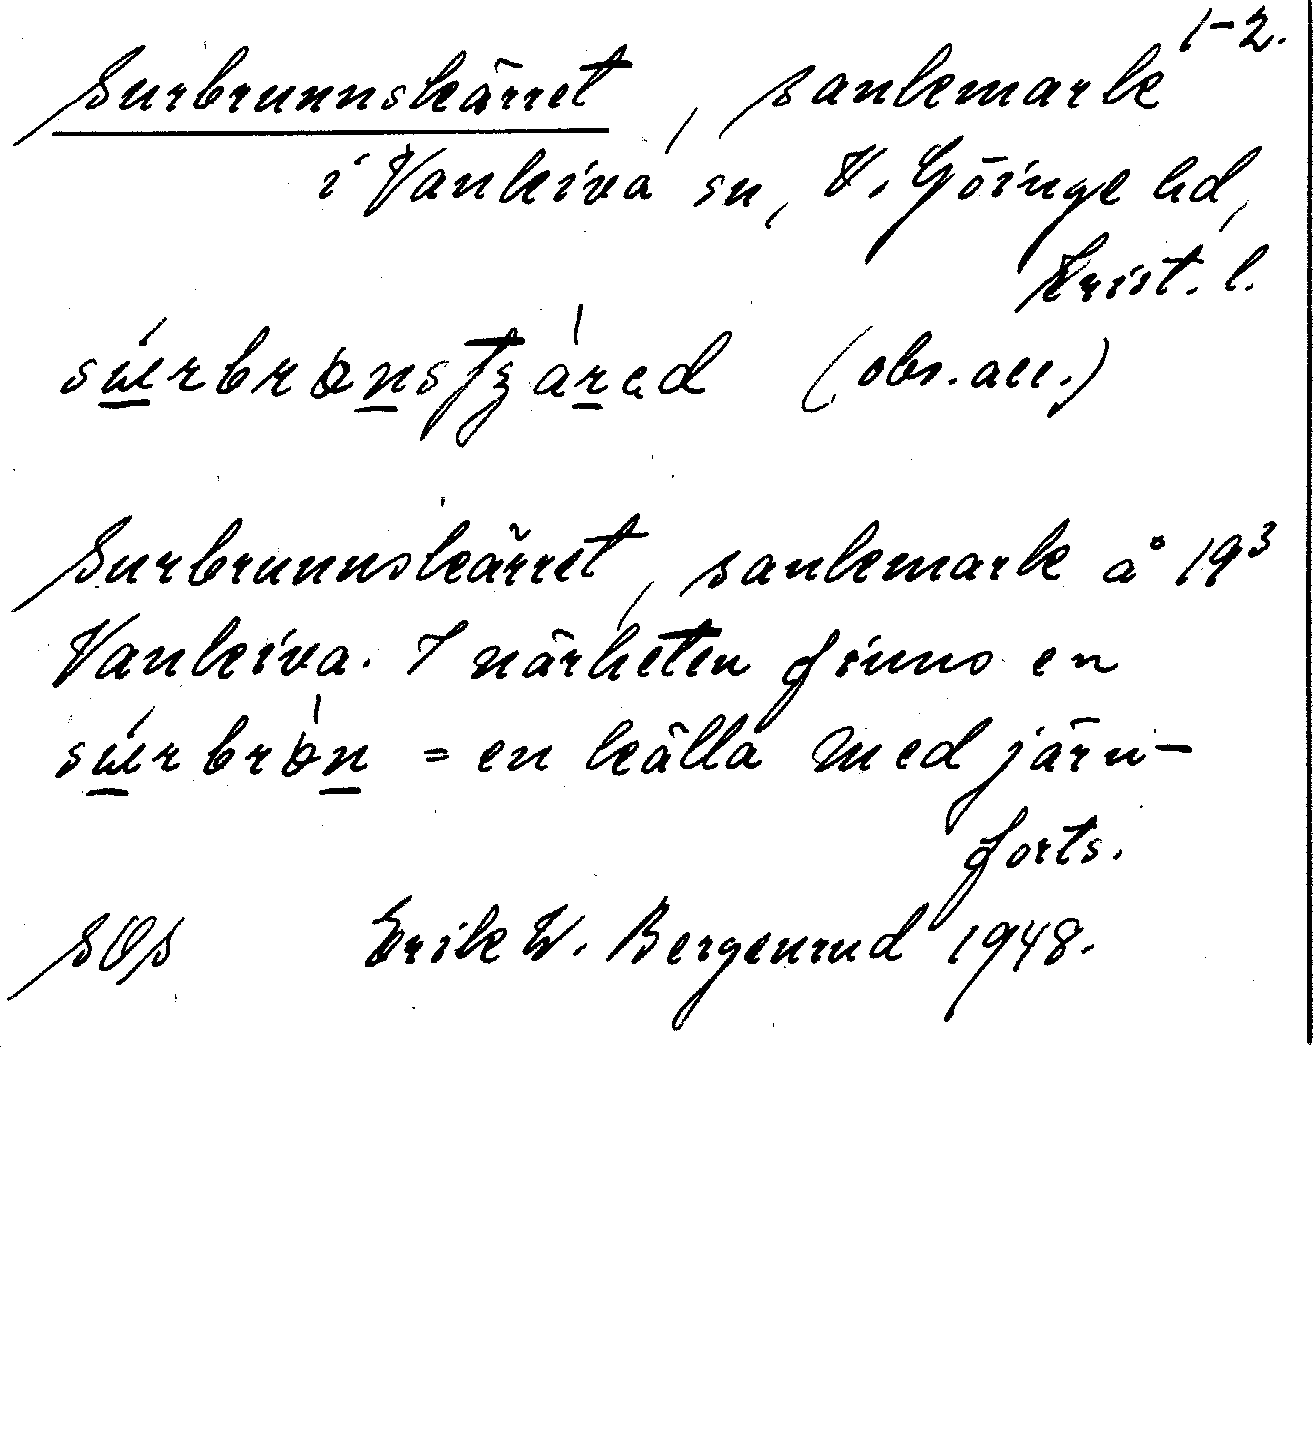 1-2.
Surbrunnskärret, sankmark
i Vankiva sn, V. Göinge hd,
Krist. l.
(obs. acc.)
Surbrunnskärret, sankmark å 19³
Vankiva. I närheten finns en
= en källa med järn-
forts.
SOS Erik W. Bergenrud 1948.